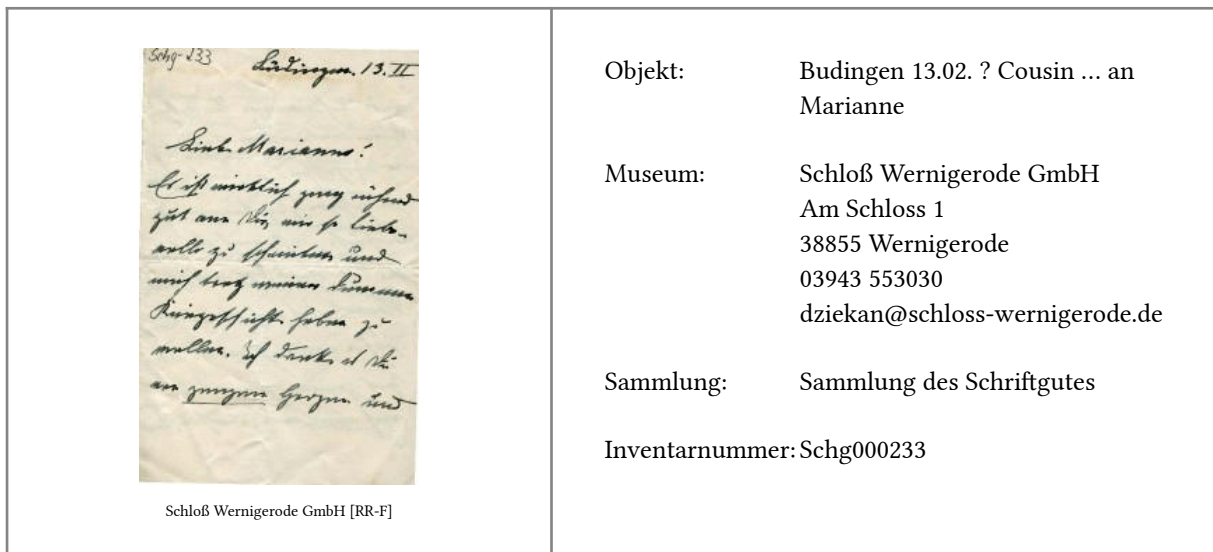 Schg-233
Büdingen. 13. II
Liebe Marianne!
Es ist wirklich ganz rührend
gut von Dir, mir so liebe-
volle zu schreiben und
mich trotz meiner dummen
zu
wollen. Ich danke es Dir
von ganzem Herzen und
Schloß Wernigerode GmbH [RR-F]
Objekt: Budingen 13.02. ? Cousin ... an
Marianne
Museum: Schloß Wernigerode GmbH
Am Schloss 1
38855 Wernigerode
03943 553030
dziekan@schloss-wernigerode.de
Sammlung: Sammlung des Schriftgutes
Inventarnummer: Schg000233